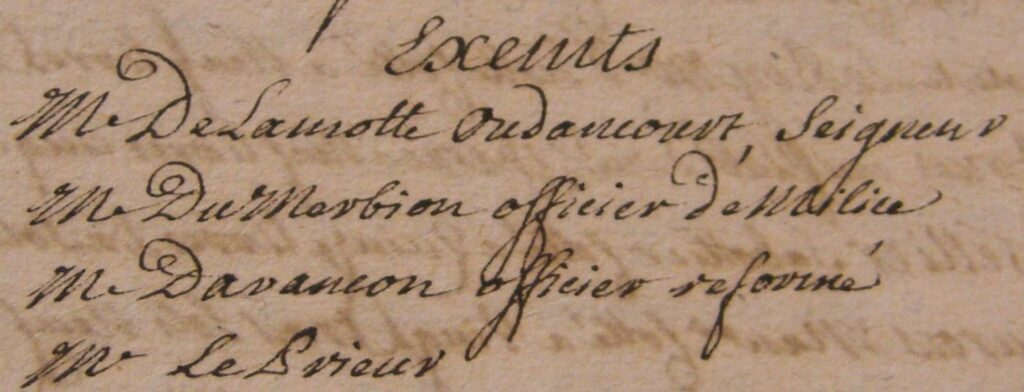 Exemts
Mr De Lamotte Oudancourt, Seigneur
Mr Du Merbion officier de Milice
Mr Davancon officier reformé
Mr Le Prieur